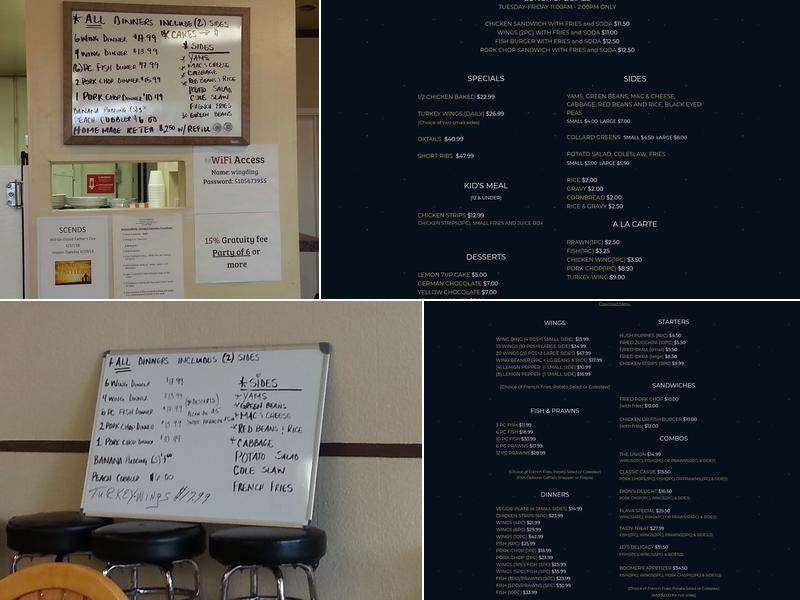 * ALL DINNERS INCLUDE (2) SIDES
* CAKES →
6 WING DINNER $17.99
4 WING DINNER $13.99
(6) PC FISH DINNER $17.99
2 PORK CHOP DINNER $15.99
1 PORK CHOP DINNER $10.49
BANANA PUDDING (S)
PEACH COBBLER $6.00
HOME MADE ICE TEA $2.50 W/ REFILL
* SIDES
* YAMS
* MAC & CHEESE
* CABBAGE
* RED BEANS & RICE
POTATO SALAD
COLE SLAW
FRENCH FRIES
* GREEN BEANS
WiFi Access
Name: wingding
Password: 5105673955
15% Gratuity fee
Party of 6 or
more
SCENDS
Will be closed Father's Day
TUESDAY-FRIDAY 11:00AM - 2:00PM ONLY
CHICKEN SANDWICH WITH FRIES and SODA $11.50
WINGS (2PC) WITH FRIES and SODA $11.00
FISH BURGER WITH FRIES and SODA $12.50
PORK CHOP SANDWICH WITH FRIES and SODA $12.50
SPECIALS
1/2 CHICKEN BAKED $22.99
TURKEY WINGS (DAILY) $26.99
(Choice of two small sides)
OXTAILS $40.99
SHORT RIBS $47.99
KID'S MEAL
(12 & UNDER)
CHICKEN STRIPS $12.99
CHICKEN STRIPS(3PC), SMALL FRIES AND JUICE BOX
DESSERTS
LEMON 7UP CAKE $5.00
GERMAN CHOCOLATE $7.00
YELLOW CHOCOLATE $7.00
SIDES
YAMS, GREEN BEANS, MAC & CHEESE,
CABBAGE, RED BEANS AND RICE, BLACK EYED
PEAS
SMALL $4.00 LARGE $7.00
COLLARD GREENS SMALL $4.50 LARGE $8.00
POTATO SALAD, COLESLAW, FRIES
SMALL $3.00 LARGE $5.50
RICE $2.00
GRAVY $2.00
CORNBREAD $2.00
RICE & GRAVY $2.50
A LA CARTE
PRAWN(1PC) $2.50
FISH(1PC) $3.25
CHICKEN WING(1PC) $3.50
PORK CHOP(1PC) $8.50
TURKEY WING $9.00
* ALL DINNERS INCLUDES (2) SIDES
6 WING DINNER $17.99
4 WING DINNER $13.99
6 PC FISH DINNER $17.99
2 PORK CHOP DINNER $15.99
1 PORK CHOP DINNER
BANANA PUDDING (S)
PEACH COBBLER $6.00
TURKEY WINGS $17.99
* SIDES
* YAMS
* GREEN BEANS
* MAC & CHEESE
* RED BEANS & RICE
* CABBAGE
POTATO SALAD
COLE SLAW
FRENCH FRIES
Download Menu
WINGS
WING DING (4 PCS+1 SMALL SIDE) $13.99
10 WINGS (10 PCS+1 LARGE SIDE) $34.99
20 WINGS (20 PCS+2 LARGE SIDES) $67.99
WING BEANER (4PC + LG BEANS & RICE) $17.99
(4) LEMON PEPPER (1 SMALL SIDE) $10.99
(8) LEMON PEPPER (1 SMALL SIDE) $16.99
(Choice of French Fries, Potato Salad or Coleslaw)
FISH & PRAWNS
3 PC FISH $11.99
6 PC FISH $18.99
10 PC FISH $30.99
6 PC PRAWNS $17.99
12 PC PRAWNS $28.99
(Choice of French Fries, Potato Salad or Coleslaw)
(Fish Options: Catfish, Snapper or Tilapia)
DINNERS
VEGGIE PLATE (4 SMALL SIDES) $14.99
CHICKEN STRIPS (6PC) $23.99
WINGS (4PC) $21.99
WINGS (6PC) $29.99
WINGS (10PC) $42.99
FISH (6PC) $25.99
PORK CHOP (1PC) $16.99
PORK CHOP (2PC) $23.99
WINGS (3PC)/FISH (3PC) $25.99
WINGS (5PC)/FISH (5PC) $35.99
FISH (3PC)/PRAWNS (5PC) $23.99
FISH (5PC)/PRAWNS (5PC) $30.99
FISH (10PC) $33.99
STARTERS
HUSH PUPPIES (8PC) $4.50
FRIED ZUCCHINI (10PC) $5.50
FRIED OKRA (small) $5.50
FRIED OKRA (large) $8.50
CHICKEN STRIPS (3PC) $9.99
SANDWICHES
FRIED PORK CHOP $10.00
(with fries) $12.00
CHICKEN OR FISH BURGER $10.00
(with fries) $12.00
COMBOS
THE UNION $14.99
WINGS(2PC), FISH(2PC) OR PRAWNS(2PC) & SIDE(1)
CLASSIC CASSIE $15.50
DION'S DELIGHT $16.50
PORK CHOP(1PC), WINGS(2PC) & SIDE(1)
FLAVA SPECIAL $25.50
TASTY TREAT $27.99
LD'S DELICACY $31.50
BOOMER'S APPETIZER $34.50
(Choice of French Fries, Potato Salad or Coleslaw)
(add $2.00 for hot sides)